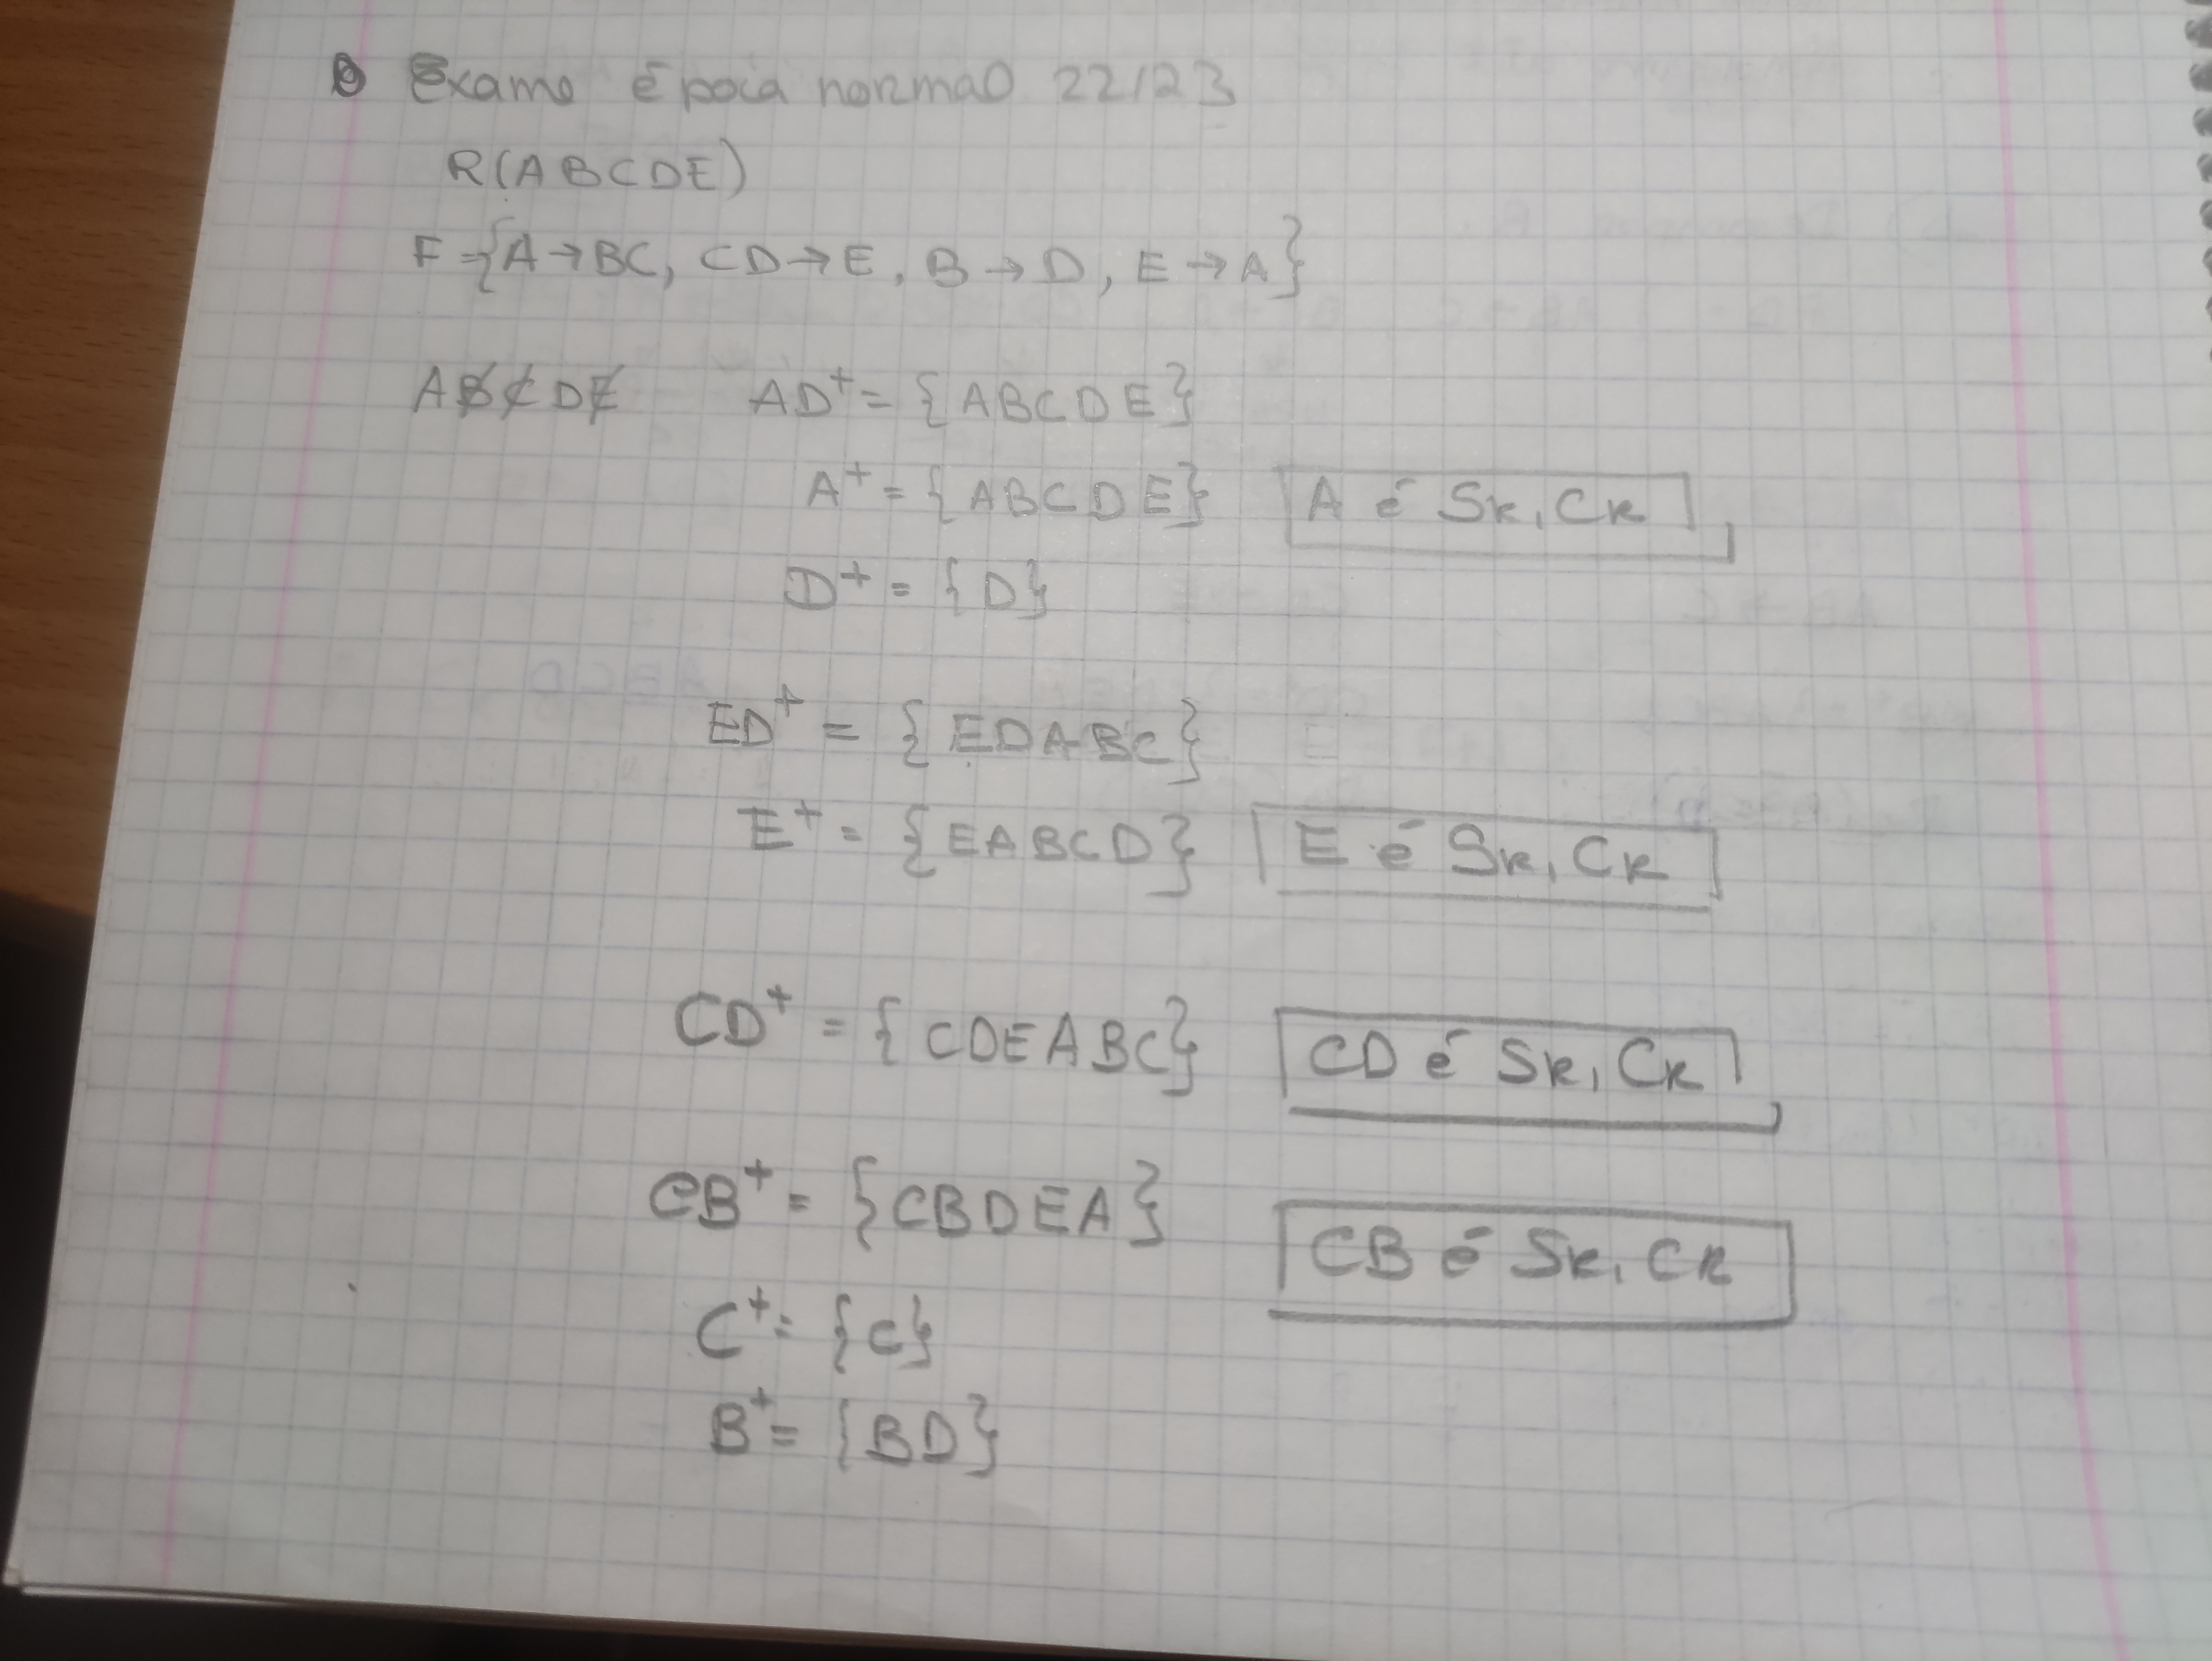 Exame época normal 22/23
R(ABCDE)
F={A→BC, CD→E, B→D, E→A}
ABCDE AD+ = {ABCDE}
A+ = {ABCDE} A é Sk, Ck
D+ = {D}
ED+ = {EDABC}
E+ = {EABCD} E é Sk, Ck
CD+ = {CDEABC} CD é Sk, Ck
CB+ = {CBDEA} CB é Sk, Ck
C+ = {C}
B+ = {BD}